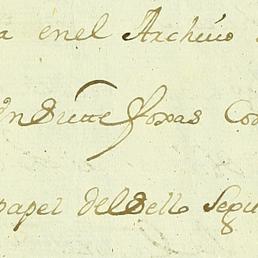 a enel Archivo
en Siette foxas Co
papel del Sello Segu